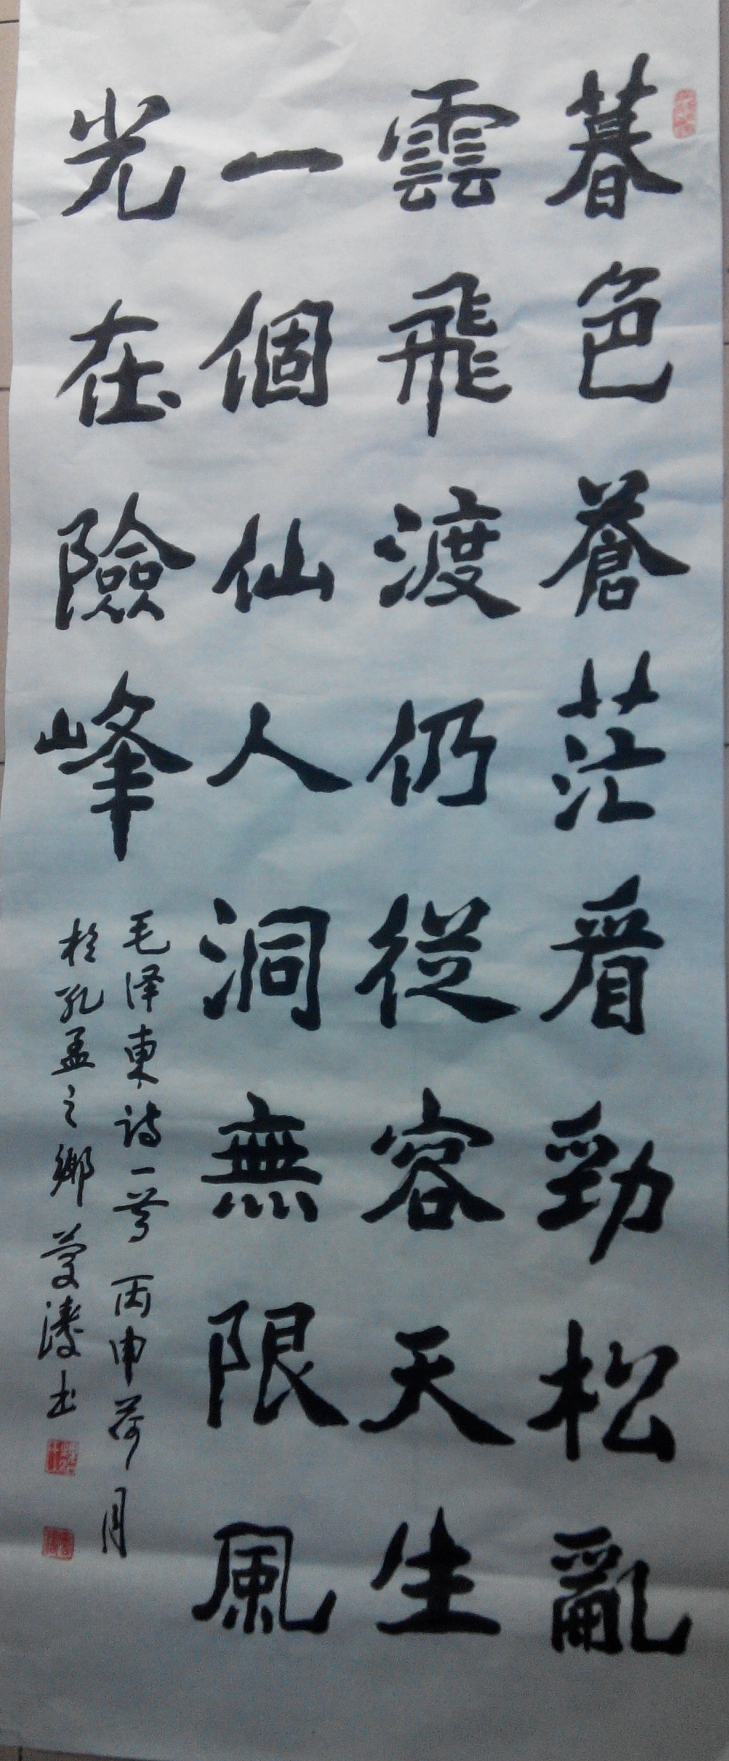 暮色蒼茫看勁松亂
雲飛渡仍從容天生
一個仙人洞無限風
光在險峰
毛泽東诗一首 丙申荷月
於孔孟之鄉 書